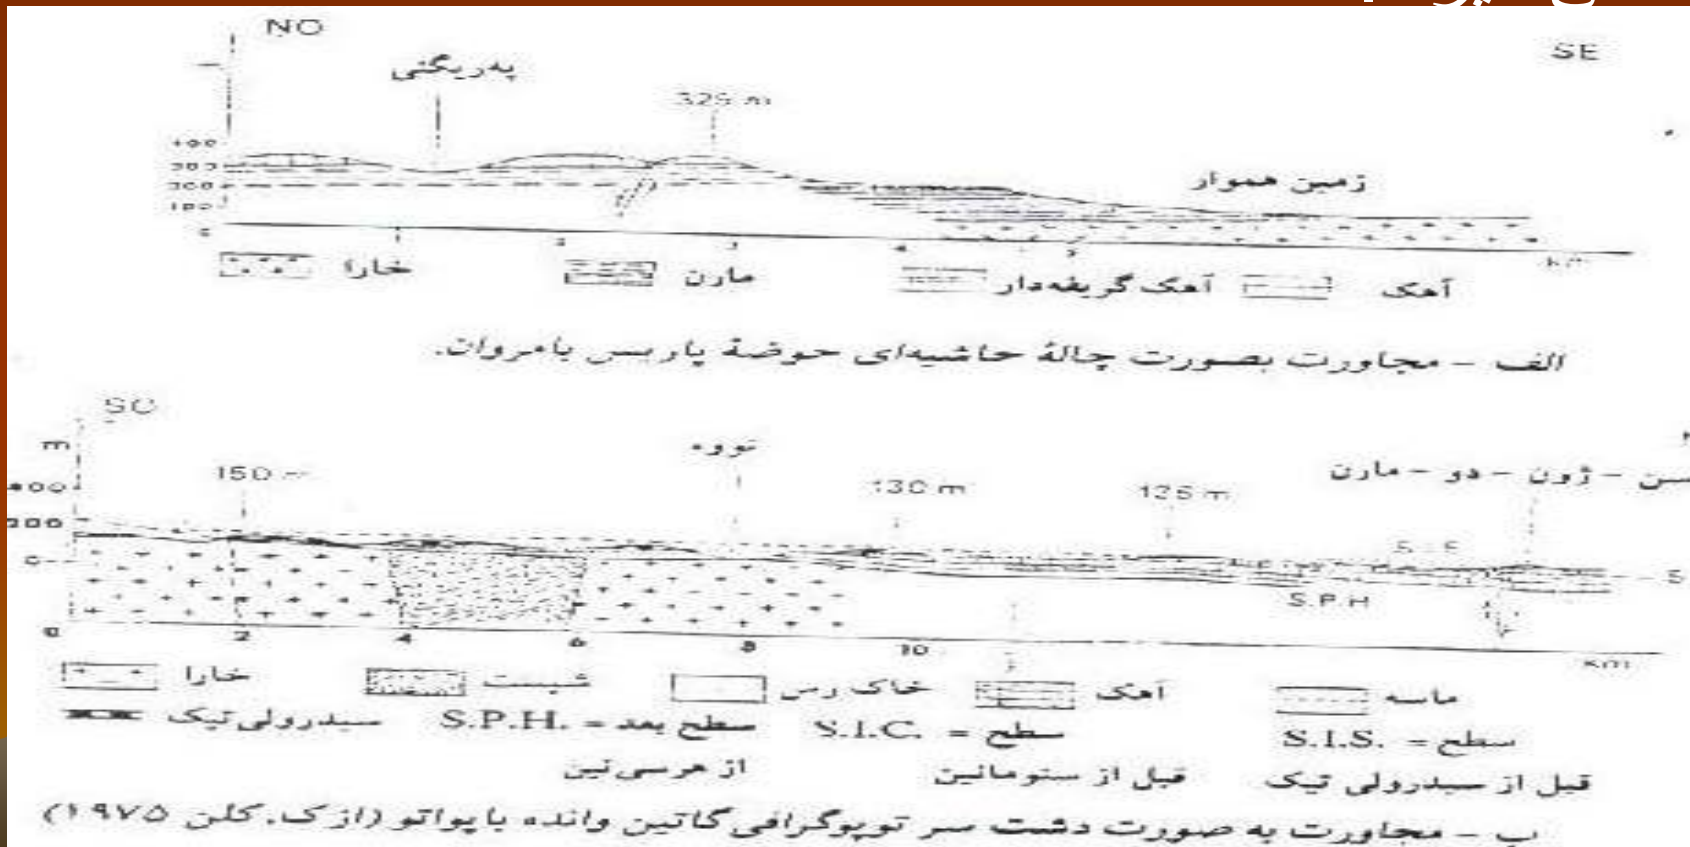 NO
SE
په‌ریگنی
329 m
زمین هموار
400
300
200
100
0 1 2 3 4 5
km
خارا مارن آهک گریفه‌دار آهک
الف - مجاورت بصورت چالهٔ حاشیه‌ای حوضهٔ پاریس بامروان.
SO
m
150 m
نووه
130 m
125 m
سن - ژون - دو - مارن
400
200
0
S.P.H
0 2 4 6 8 10
km
خارا شیست خاک رس آهک ماسه
سیدرولی‌تیک S.P.H. = سطح بعد S.I.C. = سطح S.I.S. = سطح
از هرسی‌نین قبل از سنومانین قبل از سیدرولی تیک
ب - مجاورت به صورت دشت سر توپوگرافی گاتین وانده با پواتو (از ک. کلن ۱۹۷۵)